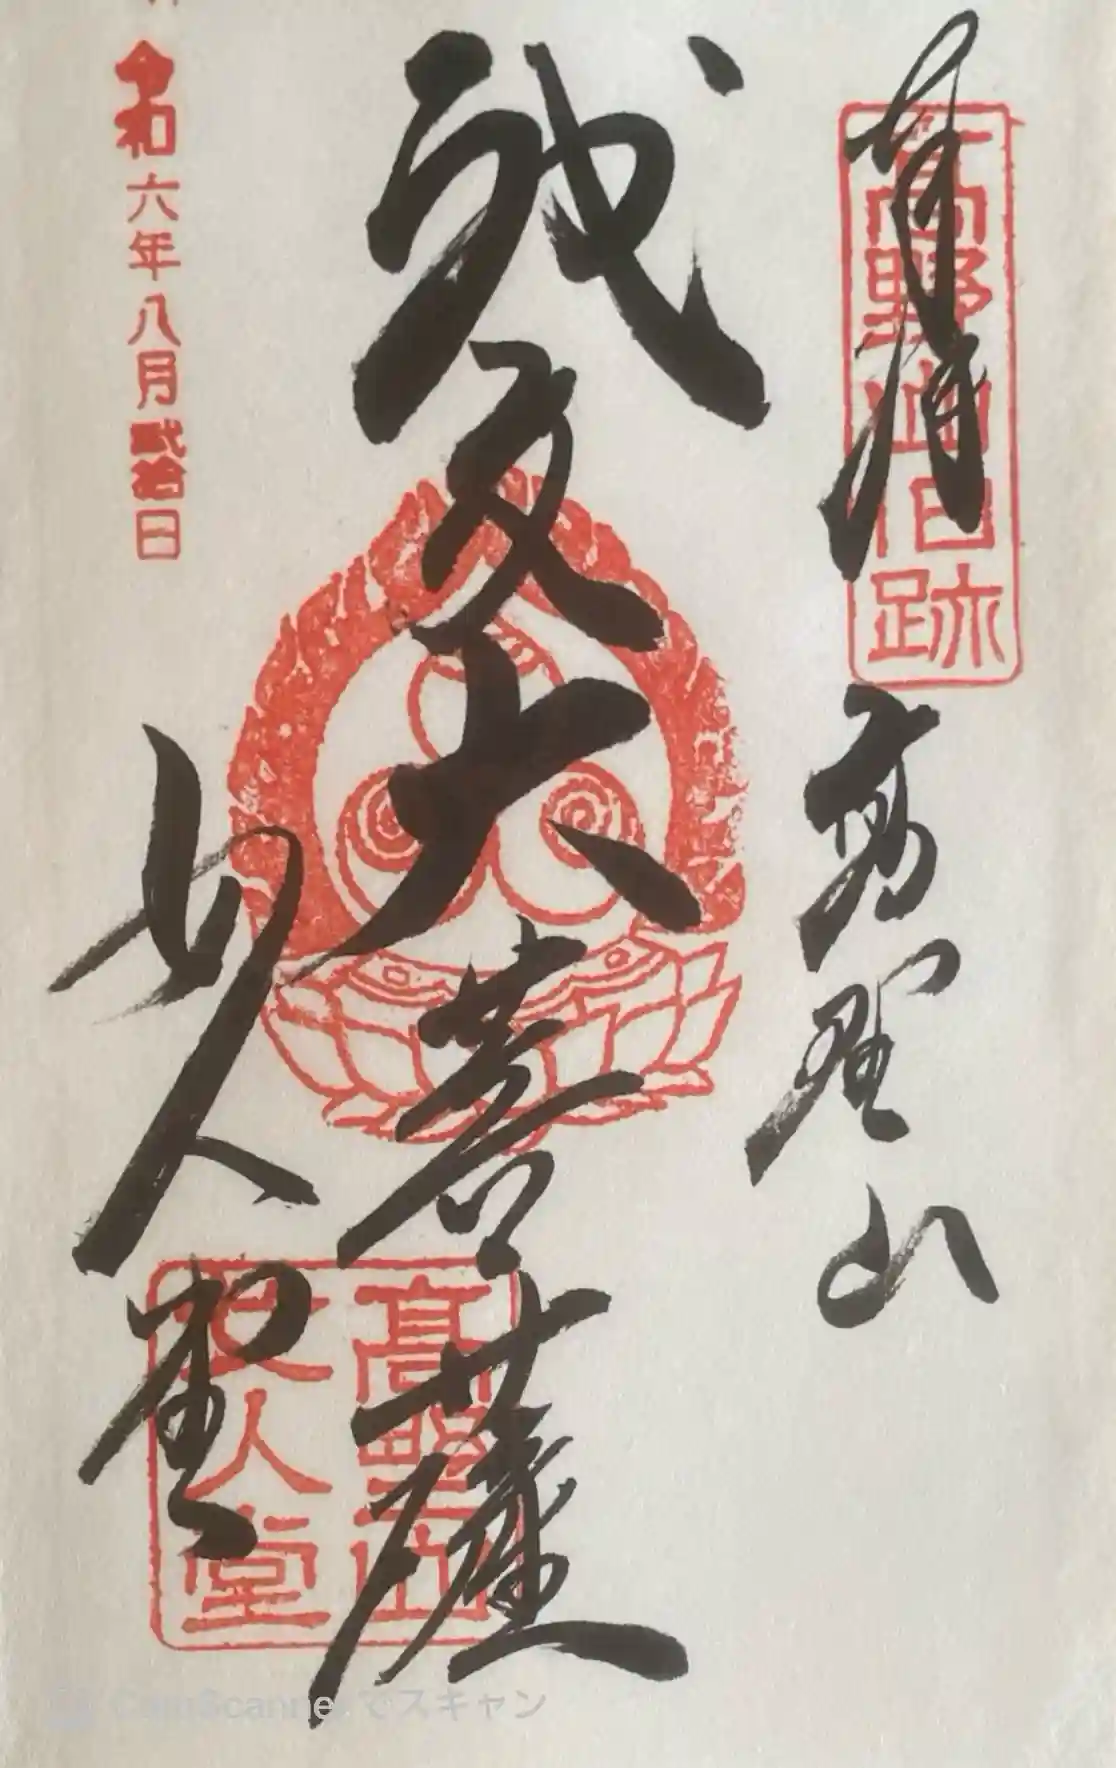 奉拝
高野山旧跡
高野山
神変大菩薩
高野山
女人堂
女人堂
令和六年八月貳拾日
CamScannerでスキャン